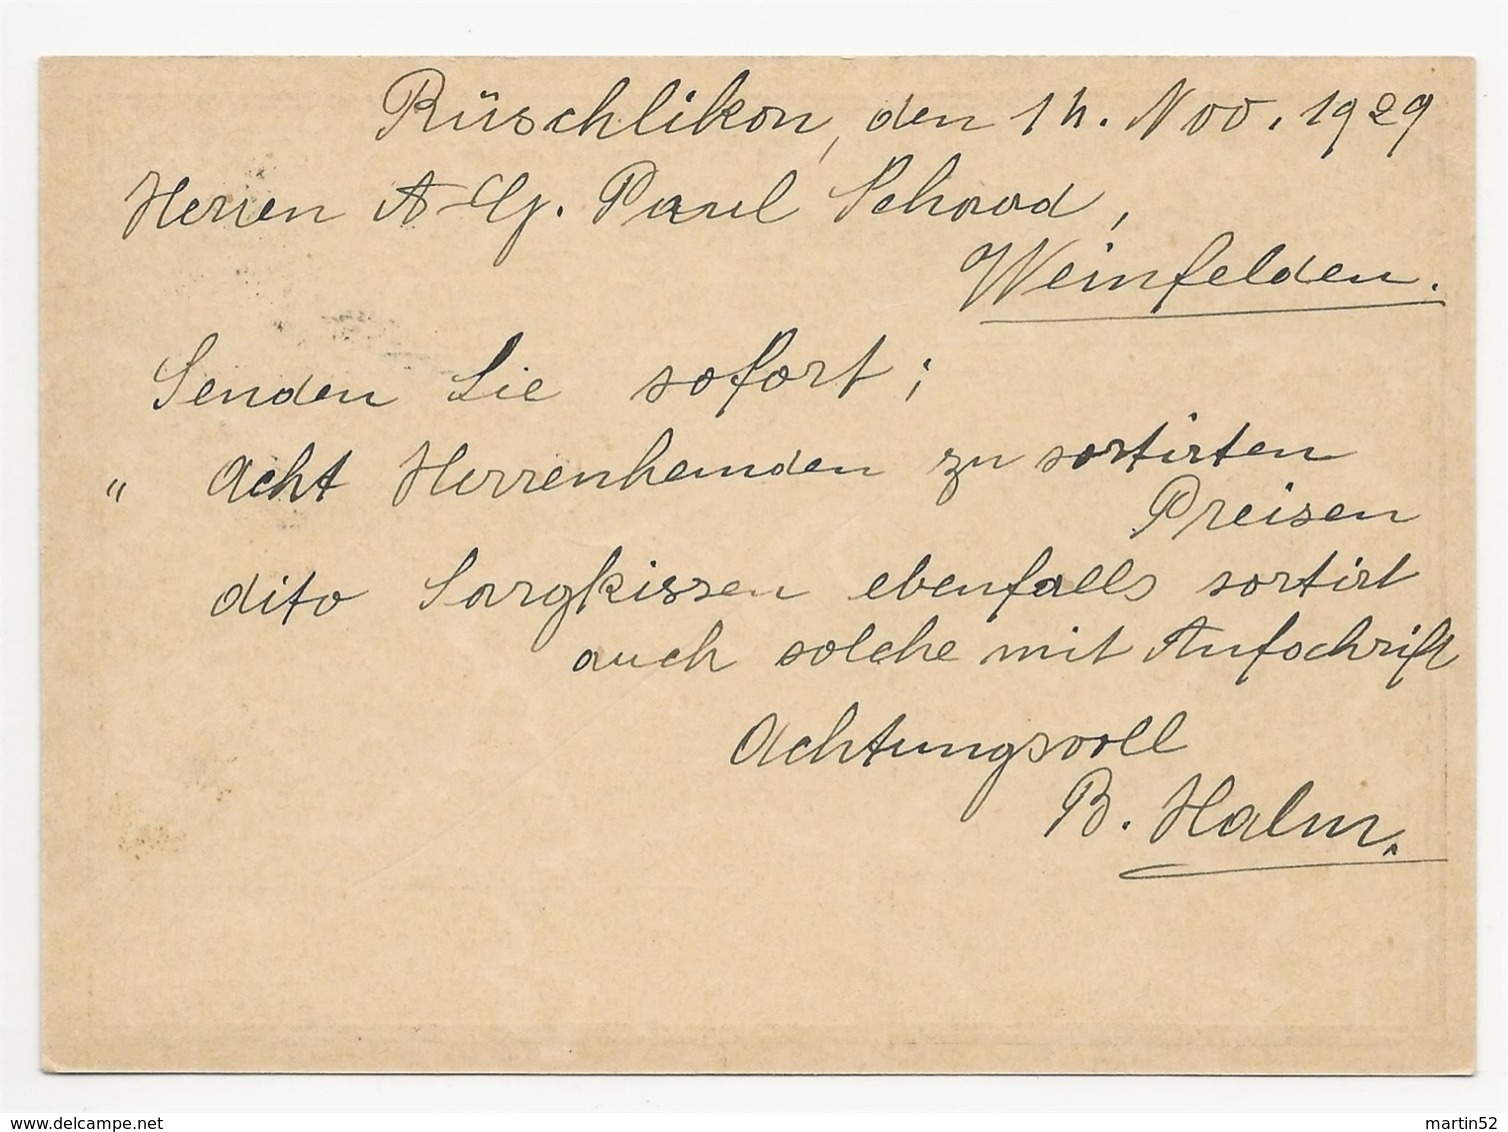 Rüschlikon, den 14. Nov. 1929
Herren A-G. Paul Schood,
Weinfelden.
Senden Sie sofort;
" Acht Herrenhemden zu sortirten
Preisen
dito Sargkissen ebenfalls sortirt
auch solche mit Aufschrift
Achtungsvoll
B. Halm.
www.delcampe.net
martin52